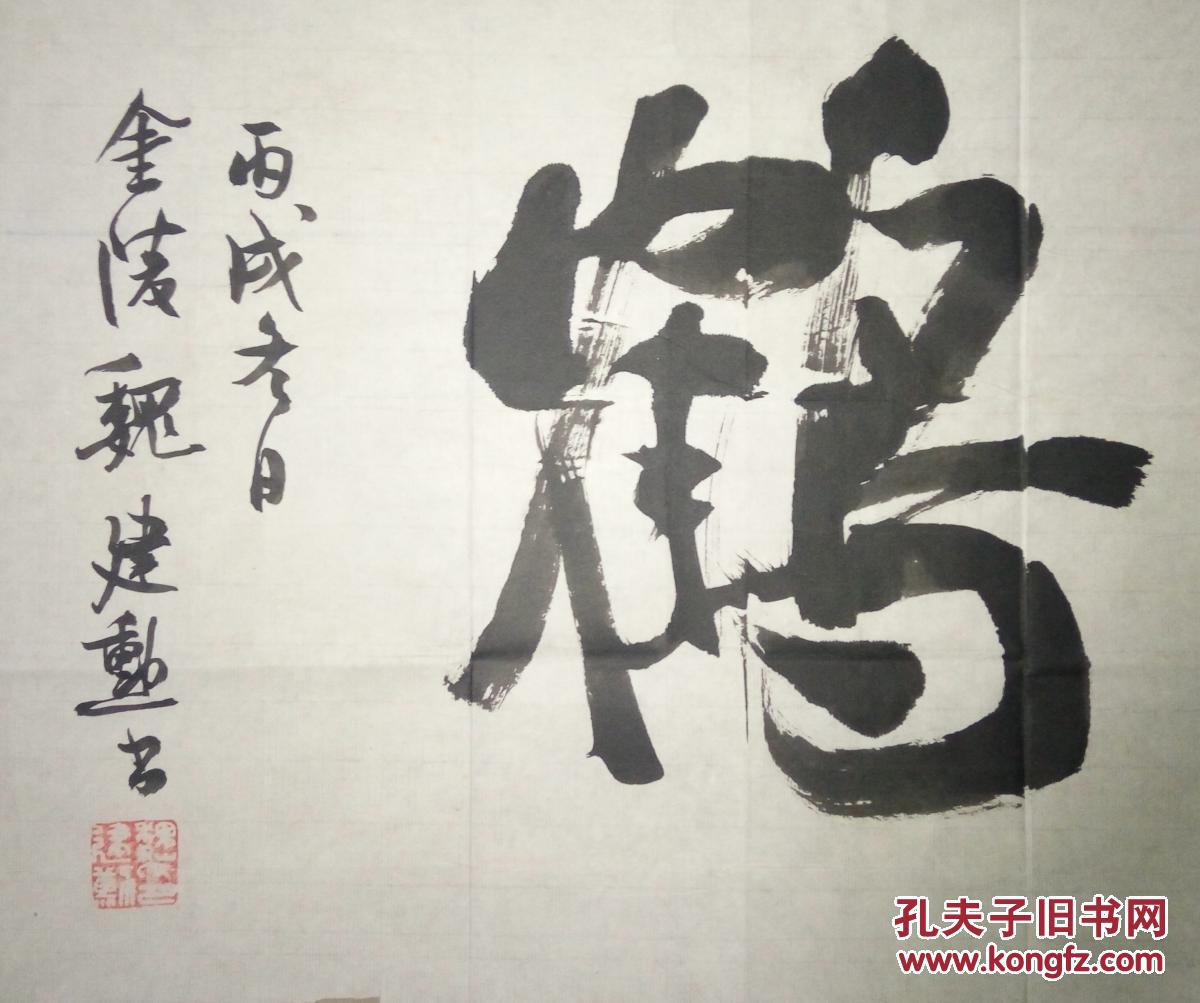 鹤
丙戌冬日
金陵魏建勳书
孔夫子旧书网
www.kongfz.com